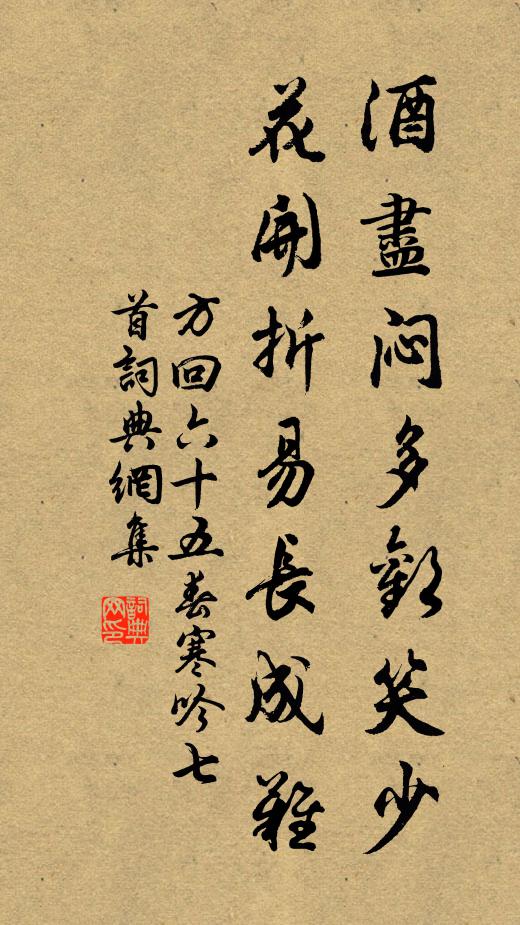 酒盡悶多歡笑少
花開折易長成難
方回六十五春寒吟七
首詞典網集
詞典
网印